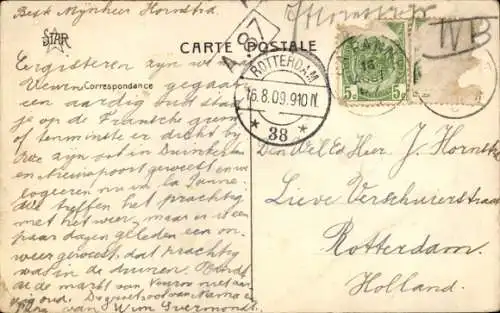 Best Mijnheer Hornstra.
STAR
CARTE POSTALE
Correspondance
Eergisteren zijn we naar
Veurne gegaan
een aardig oud stadje
je op de Fransche grens
of tenminste er dicht bij
zijn ook in Duinkerken
en Nieuwpoort geweest en we
logeeren nu in la Panne.
We treffen het prachtig
met het weer, maar is it een
paar dagen geleden een on-
weer geweest, dat prachtig
was in de duinen.
de markt van Veurne
oud. De groeten van Mama en
van Wim
A 97
ROTTERDAM
16.8.09.9-10 N.
* 38 *
PANNE
5c 5c
IVB
Den Wel Ed. Heer J. Hornstra
Lieve Verschuierstraat
Rotterdam.
Holland.